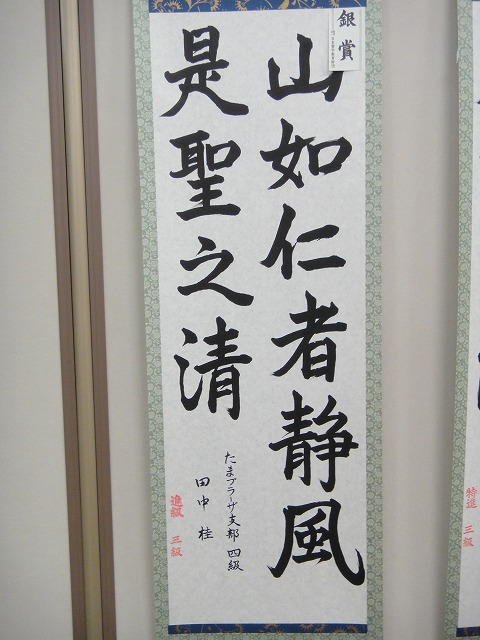 銀賞
山如仁者静風
是聖之清
たまプラーザ支部 四級
田中桂
進級 三級
特進 三級